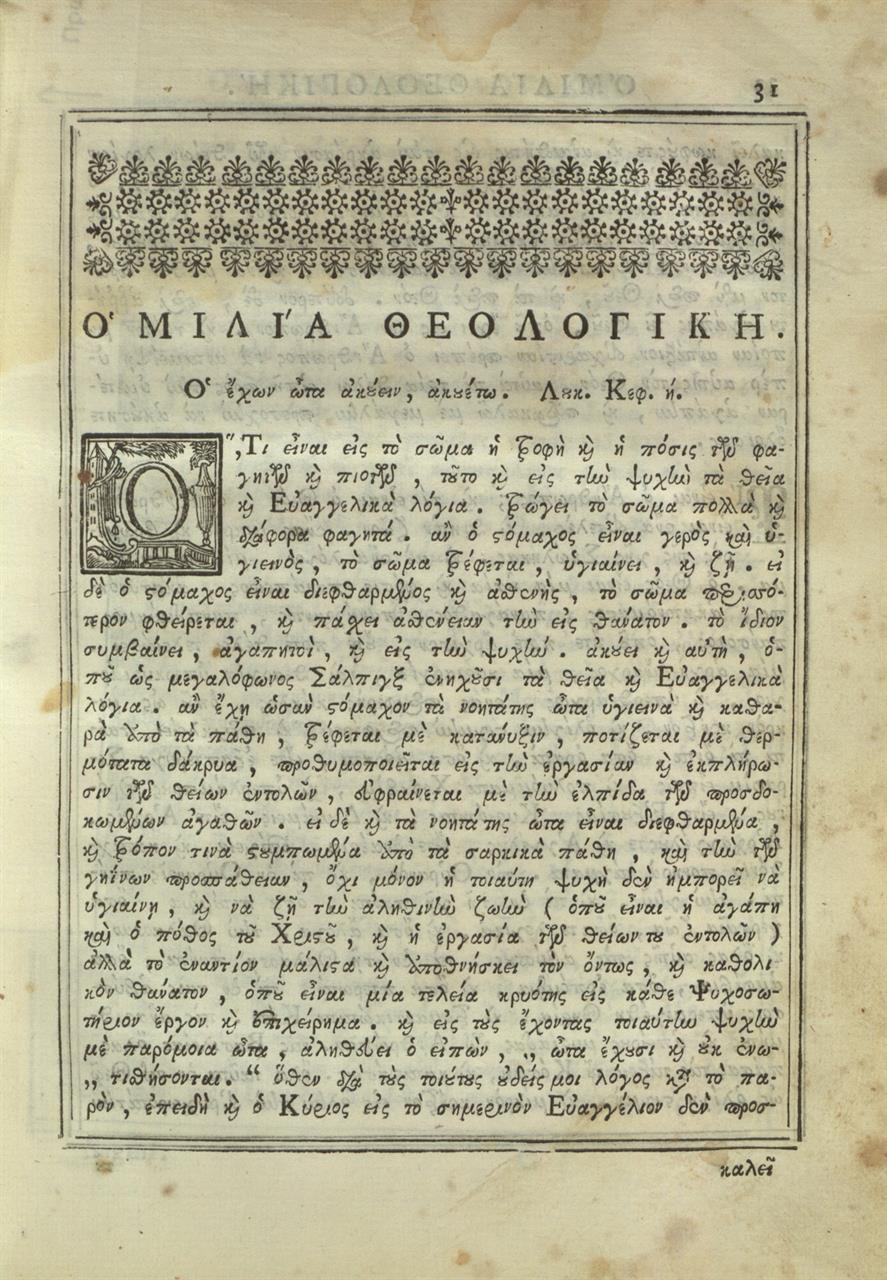 31
Ὁ ΜΙΛΙΆ ΘΕΟΛΟΓΙΚΉ.
Ὁ ἔχων ὦτα ἀκούειν, ἀκουέτω. Λουκ. Κεφ. ή.
Ὅ,Τι εἶναι εἰς τὸ σῶμα ἡ τροφὴ καὶ ἡ πόσις τῶν φα-
γητῶν καὶ πιοτῶν, τοῦτο καὶ εἰς τὴν ψυχὴν τὰ θεῖα
καὶ Εὐαγγελικὰ λόγια. τρώγει τὸ σῶμα πολλὰ καὶ
διάφορα φαγητά. ἂν ὁ στόμαχος εἶναι γερὸς καὶ ὑ-
γιεινὸς, τὸ σῶμα τρέφεται, ὑγιαίνει, καὶ ζῇ. εἰ
δὲ ὁ στόμαχος εἶναι διεφθαρμένος καὶ ἀσθενὴς, τὸ σῶμα περισσό-
τερον φθείρεται, καὶ πάσχει ἀσθένειαν τὴν εἰς θάνατον. τὸ ἴδιον
συμβαίνει, ἀγαπητοὶ, καὶ εἰς τὴν ψυχήν. ἀκούει καὶ αὐτὴ, ὁ-
ποῦ ὡς μεγαλόφωνος Σάλπιγξ ἐνηχοῦσι τὰ θεῖα καὶ Εὐαγγελικὰ
λόγια. ἂν ἔχῃ ὡσὰν στόμαχον τὰ νοητάτης ὦτα ὑγιεινὰ καὶ καθα-
ρὰ ἀπὸ τὰ πάθη, τρέφεται μὲ κατάνυξιν, ποτίζεται μὲ θερ-
μότατα δάκρυα, προθυμοποιεῖται εἰς τὴν ἐργασίαν καὶ ἐκπλήρω-
σιν τῶν θείων ἐντολῶν, εὐφραίνεται μὲ τὴν ἐλπίδα τῶν προσδο-
κωμένων ἀγαθῶν. εἰ δὲ καὶ τὰ νοητά της ὦτα εἶναι διεφθαρμένα,
καὶ τρόπον τινὰ στουμπωμένα ἀπὸ τὰ σαρκικὰ πάθη, καὶ τὴν τῶν
γηΐνων προσπάθειαν, ὄχι μόνον ἡ τοιαύτη ψυχὴ δὲν ἠμπορεῖ νὰ
ὑγιαίνῃ, καὶ νὰ ζῇ τὴν ἀληθινὴν ζωὴν ( ὁποῦ εἶναι ἡ ἀγάπη
καὶ ὁ πόθος τοῦ Χριστοῦ, καὶ ἡ ἐργασία τῶν θείων του ἐντολῶν )
ἀλλὰ τὸ ἐναντίον μάλιστα καὶ ἀποθνήσκει τὸν ὄντως, καὶ καθολι
κὸν θάνατον, ὁποῦ εἶναι μία τελεία κρυότης εἰς κάθε Ψυχοσω-
τήριον ἔργον καὶ ἐπιχείρημα. καὶ εἰς τοὺς ἔχοντας τοιαύτην ψυχὴν
μὲ παρόμοια ὦτα, ἀληθεύει ὁ εἰπὼν, „ ὦτα ἔχουσι καὶ οὐκ ἐνω-
„ τισθήσονται. “ ὅθεν διὰ τοὺς τοιούτους οὐδείς μοι λόγος κατὰ τὸ πα-
ρὸν, ἐπειδὴ καὶ ὁ Κύριος εἰς τὸ σημερινὸν Εὐαγγέλιον δὲν προσ-
καλεῖ